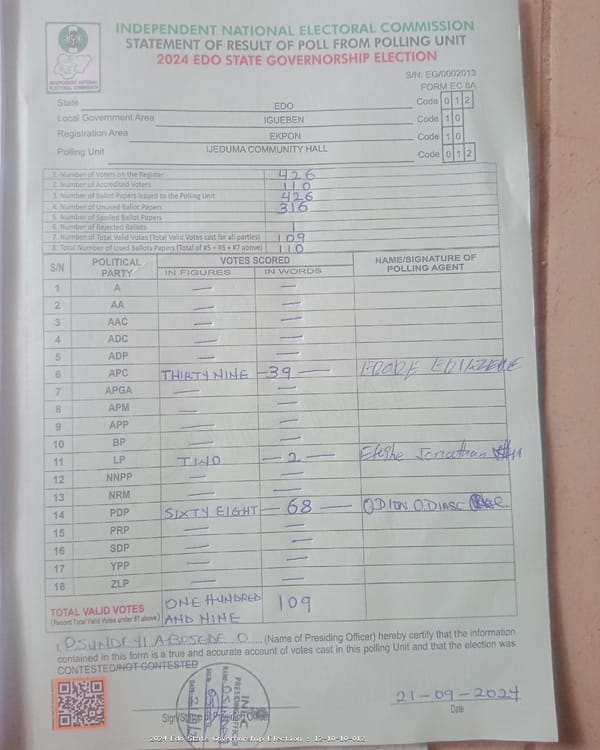 INDEPENDENT NATIONAL ELECTORAL COMMISSION
STATEMENT OF RESULT OF POLL FROM POLLING UNIT
2024 EDO STATE GOVERNORSHIP ELECTION
INEC
INDEPENDENT NATIONAL ELECTORAL COMMISSION
S/N: EG/0002013
FORM EC 8A
State EDO Code 0 1 2
Local Government Area IGUEBEN Code 1 0
Registration Area EKPON Code 1 0
Polling Unit IJEDUMA COMMUNITY HALL Code 0 1 2
1. Number of Voters on the Register 426
2. Number of Accredited Voters 110
3. Number of Ballot Papers Issued to the Polling Unit 426
4. Number of Unused Ballot Papers 316
5. Number of Spoiled Ballot Papers
6. Number of Rejected Ballots 1
7. Number of Total Valid Votes (Total Valid Votes cast for all parties) 109
8. Total Number of Used Ballots Papers (Total of #5 + #6 + #7 above) 110
S/N POLITICAL PARTY VOTES SCORED NAME/SIGNATURE OF POLLING AGENT
IN FIGURES IN WORDS
1 A — —
2 AA — —
3 AAC — —
4 ADC — —
5 ADP — —
6 APC THIRTY NINE -39 —
7 APGA — —
8 APM — —
9 APP — —
10 BP — —
11 LP TWO — 2 — Efeghe Jonathan
12 NNPP — —
13 NRM — —
14 PDP SIXTY EIGHT — 68 — ODION ODIASE
15 PRP — —
16 SDP — —
17 YPP — —
18 ZLP — —
TOTAL VALID VOTES ONE HUNDRED AND NINE 109
(Record Total Valid Votes under #7 above)
I, OSUNDEYI ABOSEDE O (Name of Presiding Officer) hereby certify that the information
contained in this form is a true and accurate account of votes cast in this polling Unit and that the election was
CONTESTED/NOT CONTESTED
21-09-2024
Date
2024 Edo State Governorship Election - 12-10-10-012